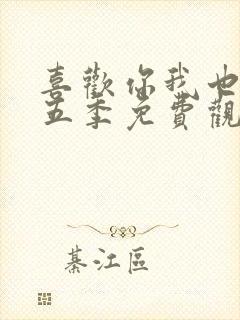 喜歡你我也
五季免費觀
綦江區